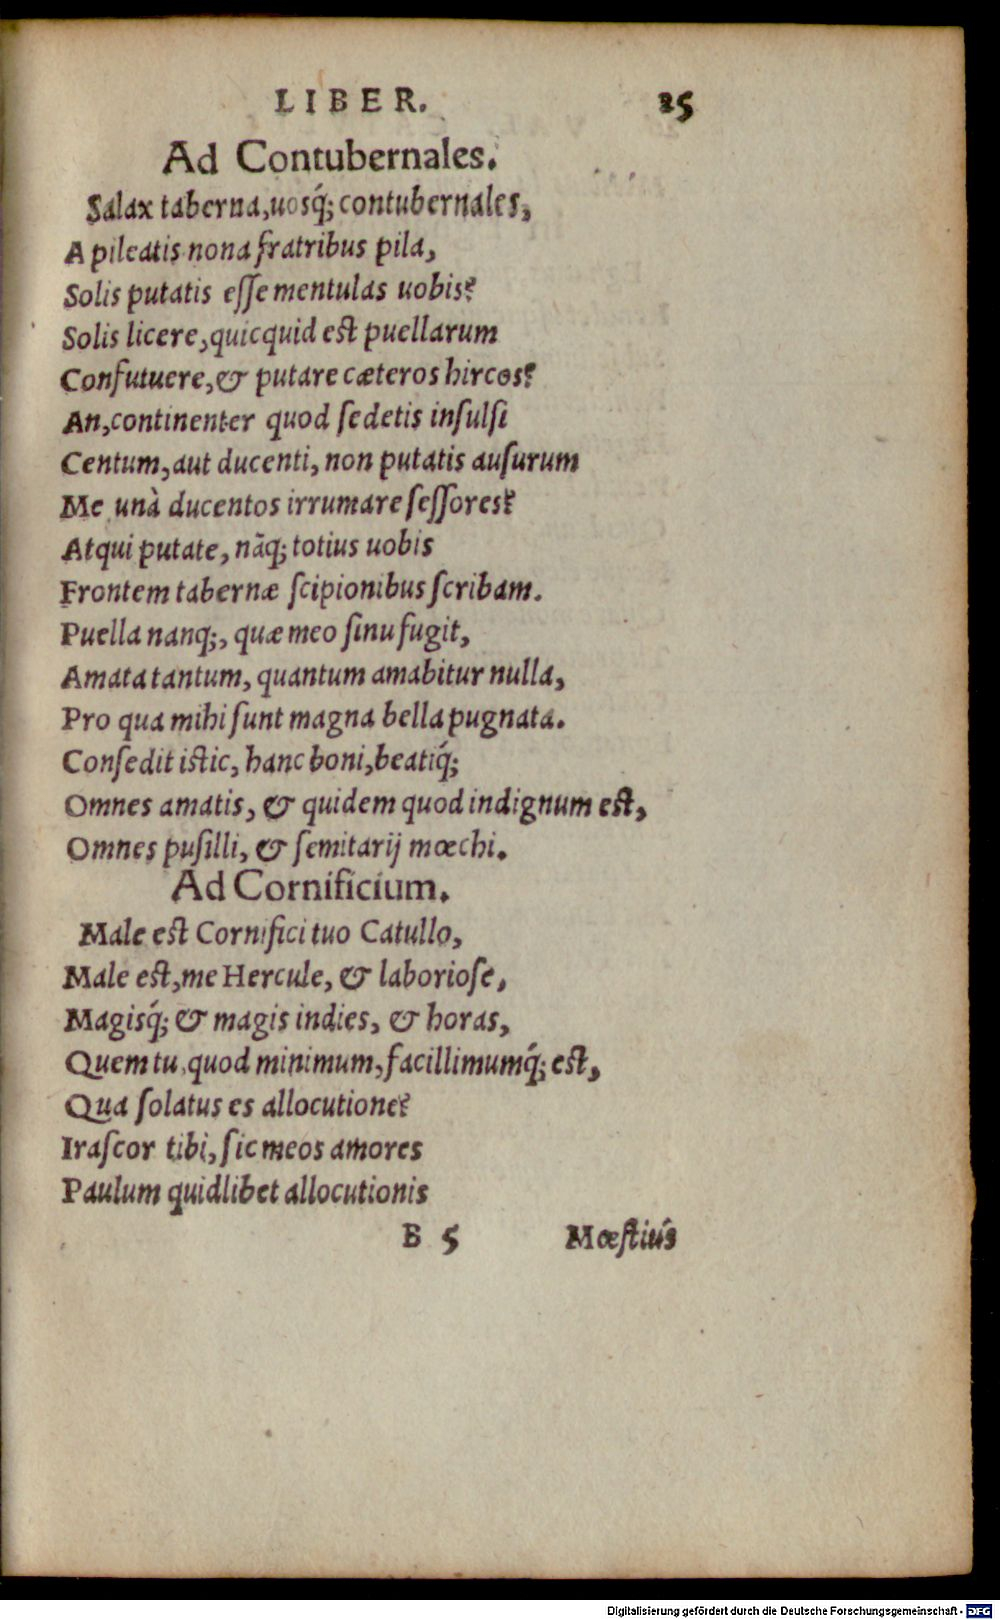 LIBER. 25
Ad Contubernales.
Salax taberna,uosq́; contubernales,
A pileatis nona fratribus pila,
Solis putatis eſſe mentulas uobis?
Solis licere,quicquid est puellarum
Confutuere,& putare cæteros hircos?
An,continenter quod ſedetis inſulſi
Centum,aut ducenti, non putatis auſurum
Me unà ducentos irrumare ſeſſores?
Atqui putate, nãq; totius uobis
Frontem tabernæ ſcipionibus ſcribam.
Puella nanq;, quæ meo ſinu fugit,
Amata tantum, quantum amabitur nulla,
Pro qua mihi ſunt magna bella pugnata.
Conſedit istic, hanc boni,beatiq́;
Omnes amatis, & quidem quod indignum est,
Omnes puſilli, & ſemitarij mœchi.
Ad Cornificium.
Male est Cornifici tuo Catullo,
Male est,me Hercule, & laborioſe,
Magisq́; & magis indies, & horas,
Quem tu,quod minimum,facillimumq́; est,
Qua ſolatus es allocutione?
Iraſcor tibi, ſic meos amores
Paulum quidlibet allocutionis
B 5 Mœſtiús
Digitalisierung gefördert durch die Deutsche Forschungsgemeinschaft - DFG